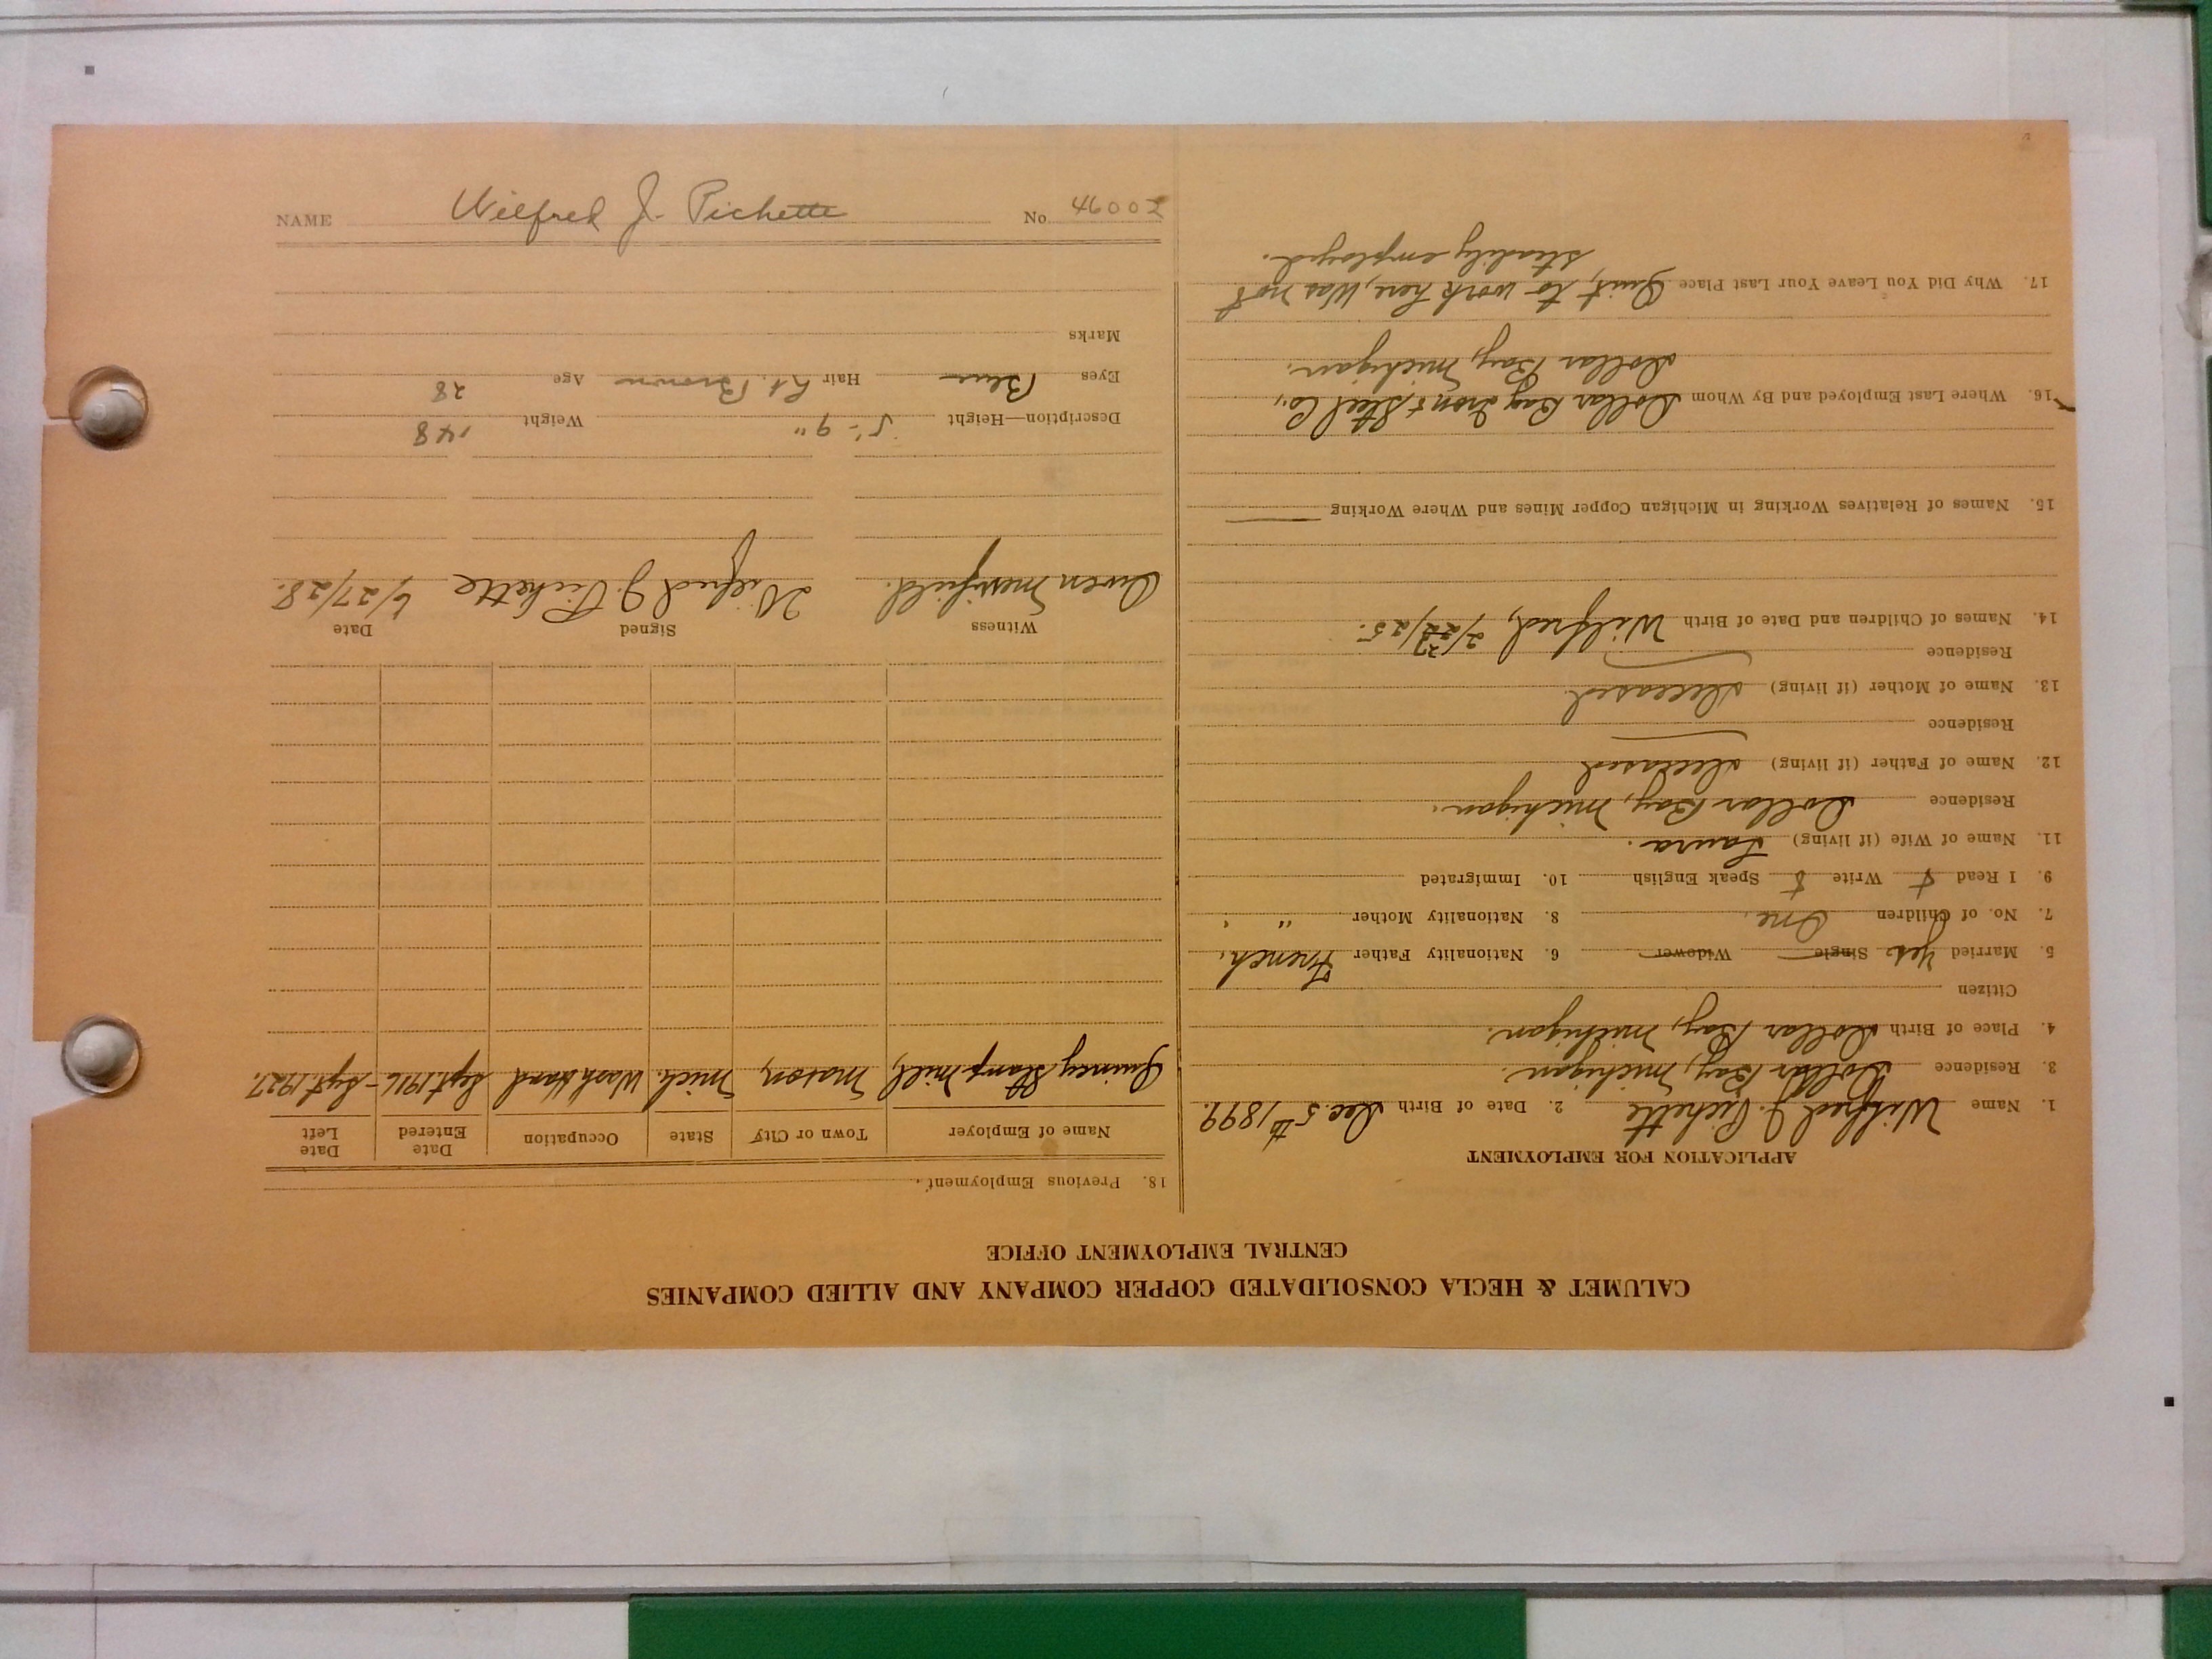 CALUMET & HECLA CONSOLIDATED COPPER COMPANY AND ALLIED COMPANIES
CENTRAL EMPLOYMENT OFFICE
APPLICATION FOR EMPLOYMENT
1. Name Wilfred J. Pichette 2. Date of Birth Dec. 5th 1899.
3. Residence Dollar Bay, Michigan.
4. Place of Birth Dollar Bay, Michigan.
Citizen
5. Married Yes Single Widower 6. Nationality Father French.
7. No. of Children One. 8. Nationality Mother " .
9. I Read & Write & Speak English 10. Immigrated
11. Name of Wife (if living) Laura.
Residence Dollar Bay, Michigan.
12. Name of Father (if living) deceased
Residence
13. Name of Mother (if living) deceased.
Residence
14. Names of Children and Date of Birth Wilfred, 2/22/25.
15. Names of Relatives Working in Michigan Copper Mines and Where Working
16. Where Last Employed and By Whom Dollar Bay Iron & Steel Co.,
Dollar Bay, Michigan.
17. Why Did You Leave Your Last Place Quit, to work here, Was not
steadily employed.
18. Previous Employment
Name of Employer Town or City State Occupation Date Entered Date Left
Quincy Stamp Mill, Mason, Mich. Wash Hand Sept. 1916 - Sept. 1927.
Witness Signed Date
Owen Merrifield. Wilfred J. Pichette 6/27/28.
Description—Height 5'-9" Weight 148
Eyes Blue Hair Lt. Brown Age 28
Marks
NAME Wilfred J. Pichette No. 46002